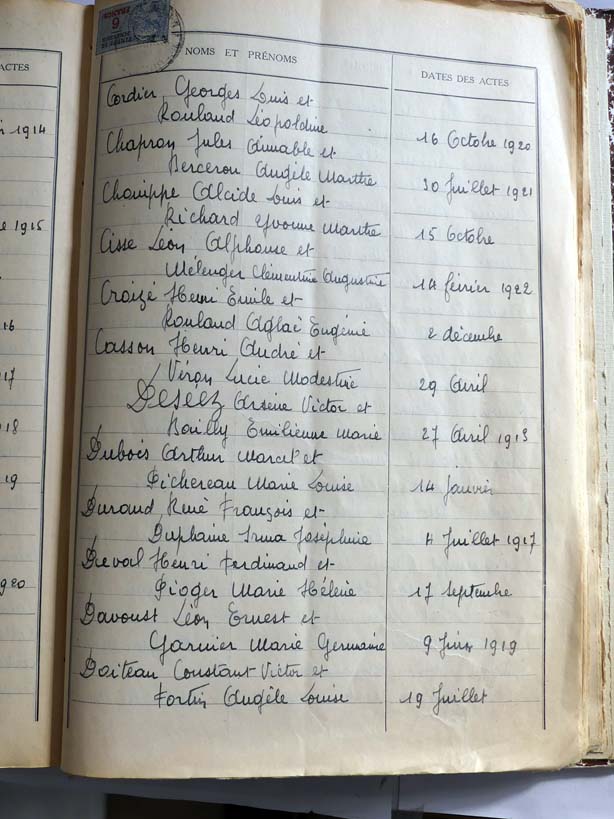 ACTES
1914
1915
16
17
18
19
920
NOMS ET PRÉNOMS
DATES DES ACTES
Cordier Georges Louis et
Rouland Léopoldine 16 Octobre 1920
Chapron Jules Aimable et
Berceron Angèle Marthe 30 Juillet 1921
Chouippe Alcide Louis et
Richard Yvonne Marthe 15 Octobre
Cisse Léon Alphonse et
Mélenger Clémentine Augustine 14 février 1922
Croizé Henri Emile et
Rouland Aglaé Eugénie 2 décembre
Casson Henri André et
Véron Lucie Modestine 29 Avril
Arsène Victor et
Bailly Emilienne Marie 27 Avril 1913
Dubois Arthur Marcel et
Pichereau Marie Louise 14 Janvier
Durand René François et
Duplaine Irma Joséphine 4 Juillet 1917
Deval Henri Ferdinand et
Pioger Marie Hélène 17 Septembre
Davoust Léon Ernest et
Garnier Marie Germaine 9 1919
Doiteau Constant Victor et
Fortin Angèle Louise 19 Juillet